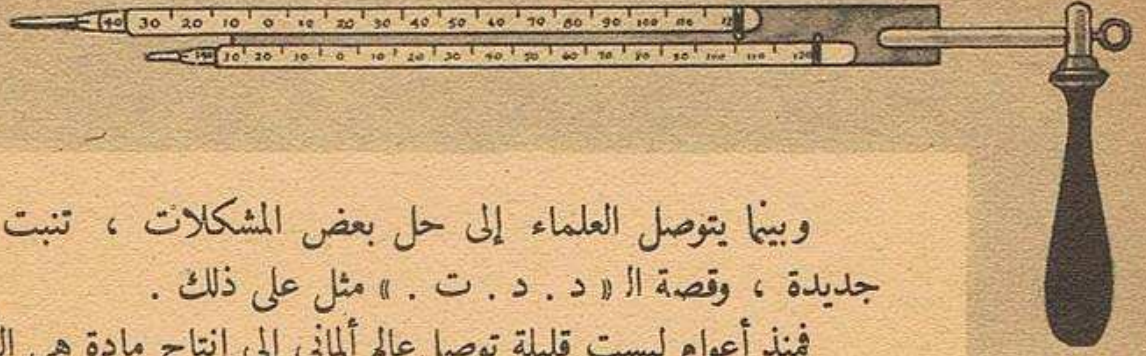 40 30 20 10 0 10 20 30 40 50 60 70 80 90 100 110
20 10 0 10 20 30 40 50 60 70 80 90 100 110 120
وبينما يتوصل العلماء إلى حل بعض المشكلات ، تنبت
جديدة ، وقصة الـ « د . د . ت . » مثل على ذلك .
فمنذ أعوام ليست قليلة توصل عالم ألماني إلى إنتاج مادة هي